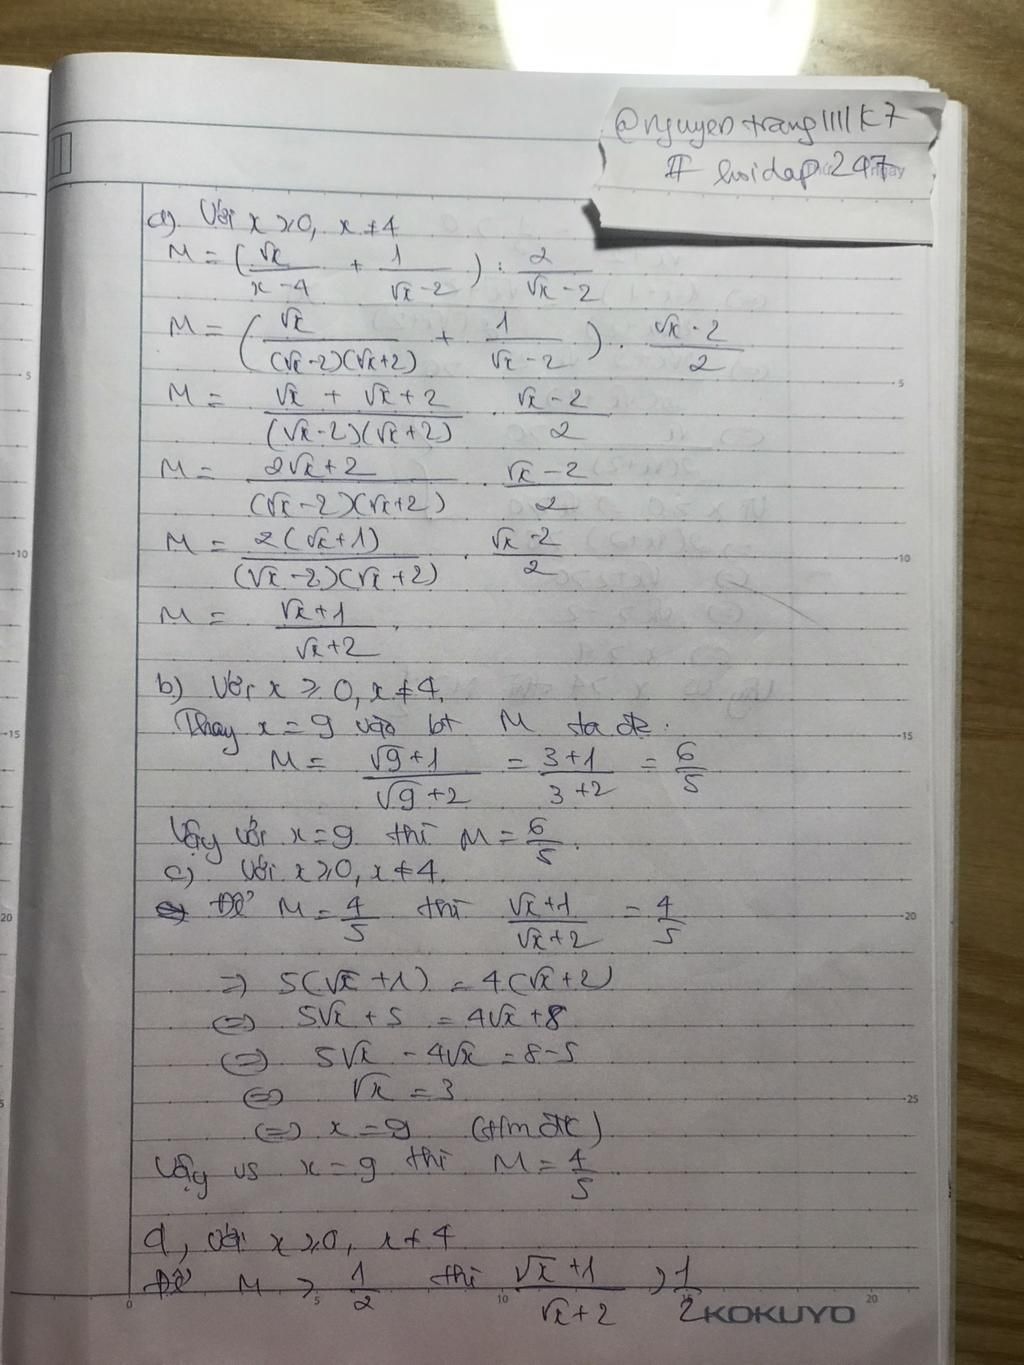 @nguyentrang1111k7
# hoidap247
a). Với x ⩾ 0, x ≠ 4
M = (√x/(x-4) + 1/(√x-2)) : 2/(√x-2)
M = (√x/((√x-2)(√x+2)) + 1/(√x-2)) . (√x-2)/2
M = (√x + √x + 2)/((√x-2)(√x+2)) . (√x-2)/2
M = (2√x+2)/((√x-2)(√x+2)) . (√x-2)/2
M = 2(√x+1)/((√x-2)(√x+2)) . (√x-2)/2
M = (√x+1)/(√x+2).
b) Với x ⩾ 0, x ≠ 4.
Thay x = 9 vào bt M ta đc.
M = (√9+1)/(√9+2) = (3+1)/(3+2) = 6/5
Vậy với x = 9 thì M = 6/5.
c) Với x ⩾ 0, x ≠ 4.
Để M = 4/5 thì (√x+1)/(√x+2) = 4/5
=> 5(√x+1) = 4(√x+2)
(=) 5√x + 5 = 4√x + 8
(=) 5√x - 4√x = 8-5
(=) √x = 3
(=) x = 9 (tm đk)
Vậy vs x = 9 thì M = 4/5
d, với x ⩾ 0, x ≠ 4
Để M > 1/2 thì (√x+1)/(√x+2) > 1/2
KOKUYO